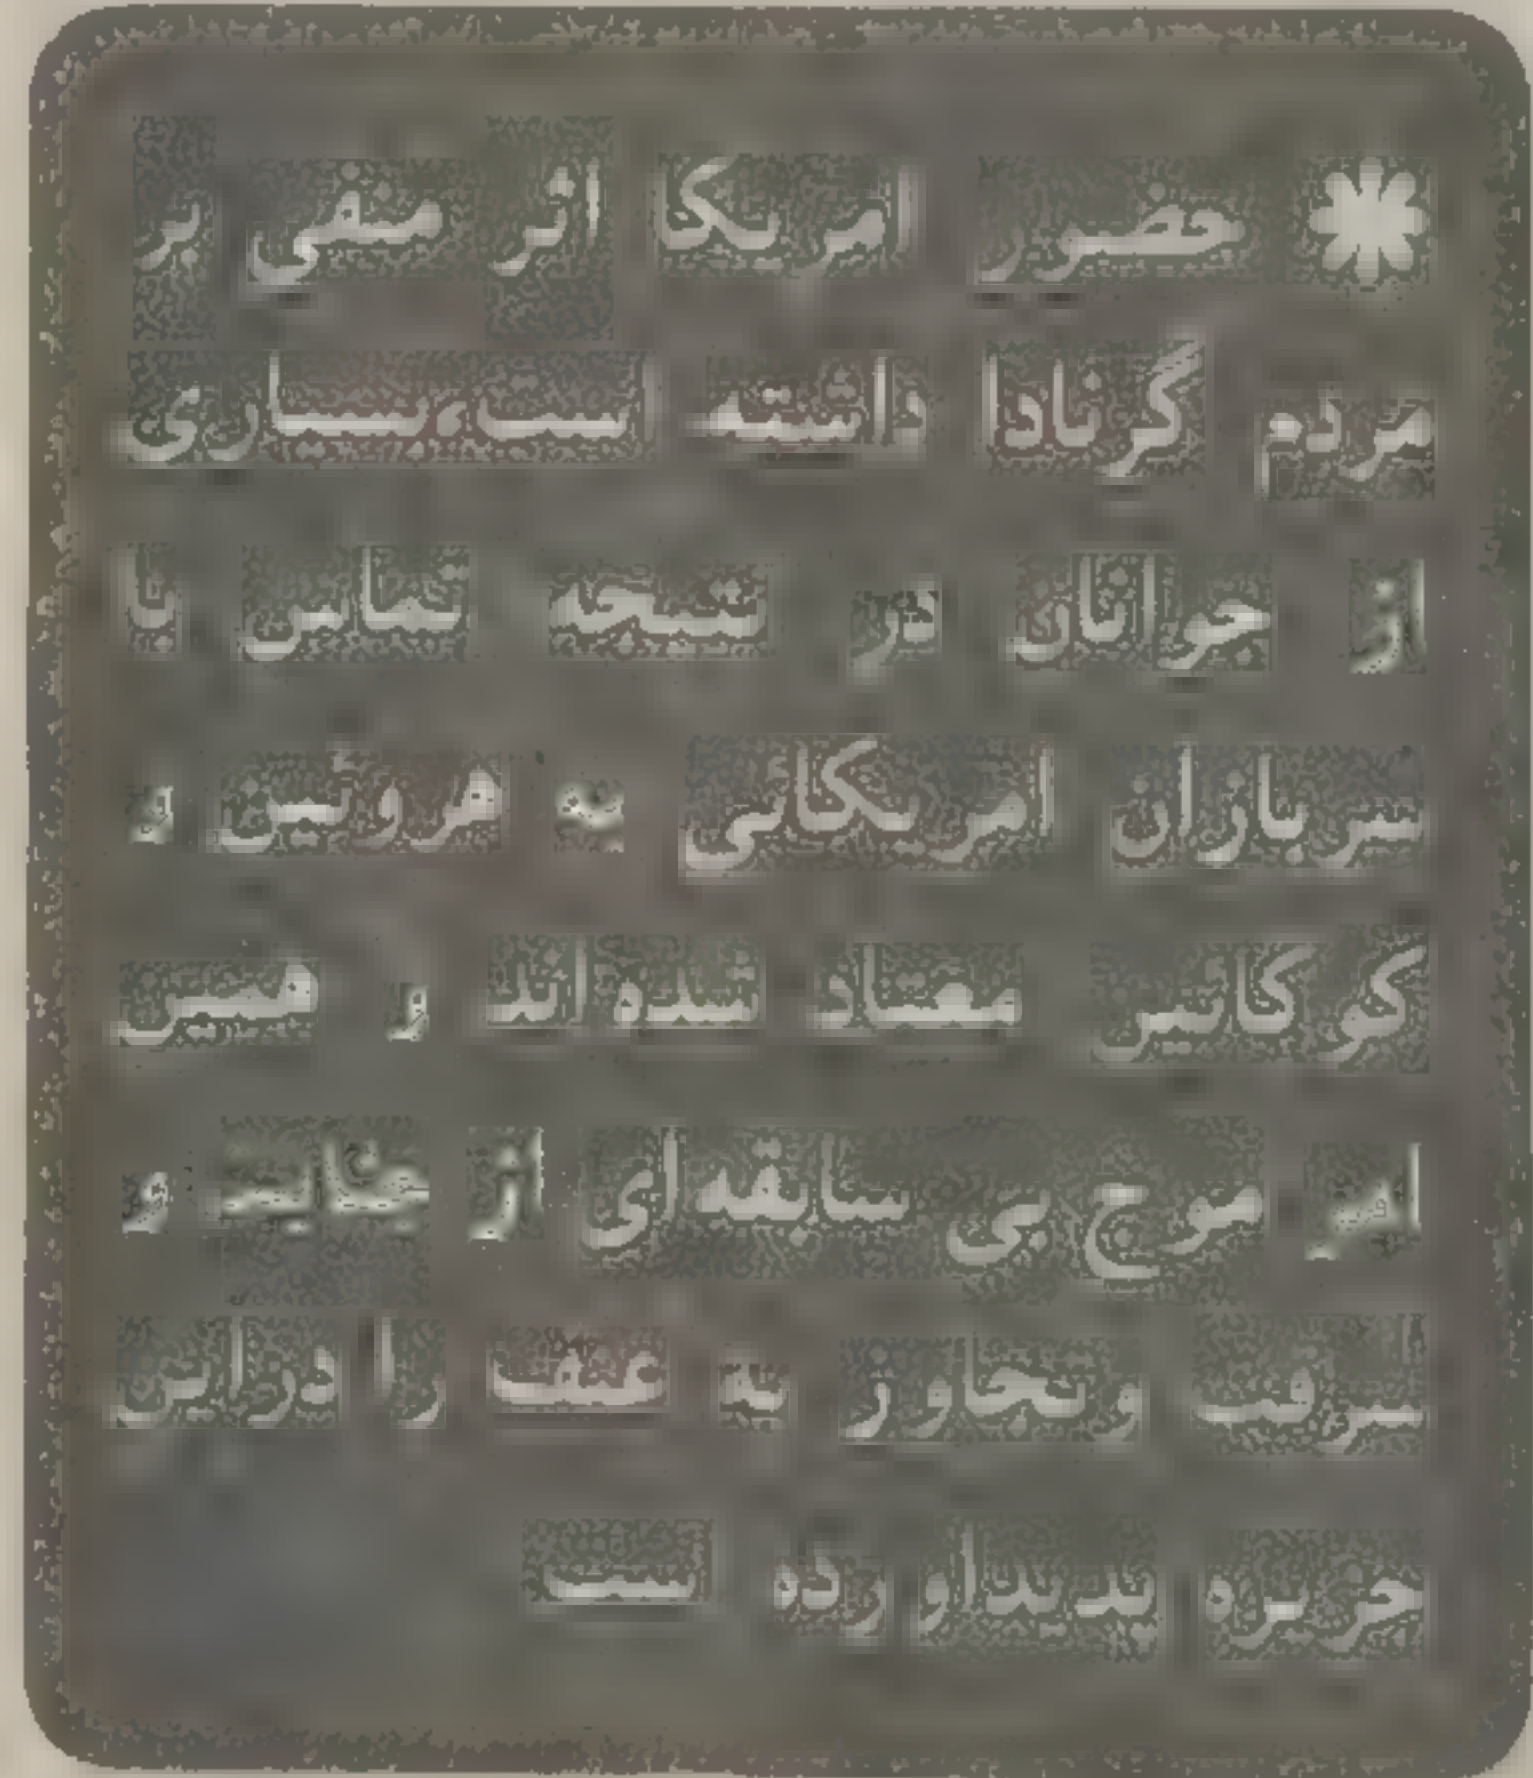 حضور امریکا اثر منفی بر
مردم گرنادا داشته است، بسیاری
از جوانان در نتیجه تماس با
سربازان امریکائی به هروئین و
کوکائین معتاد شده اند و همین
امر موج بی سابقه‌ای از
سرقت و تجاوز به عنف را در این
جزیره پدید آورده است